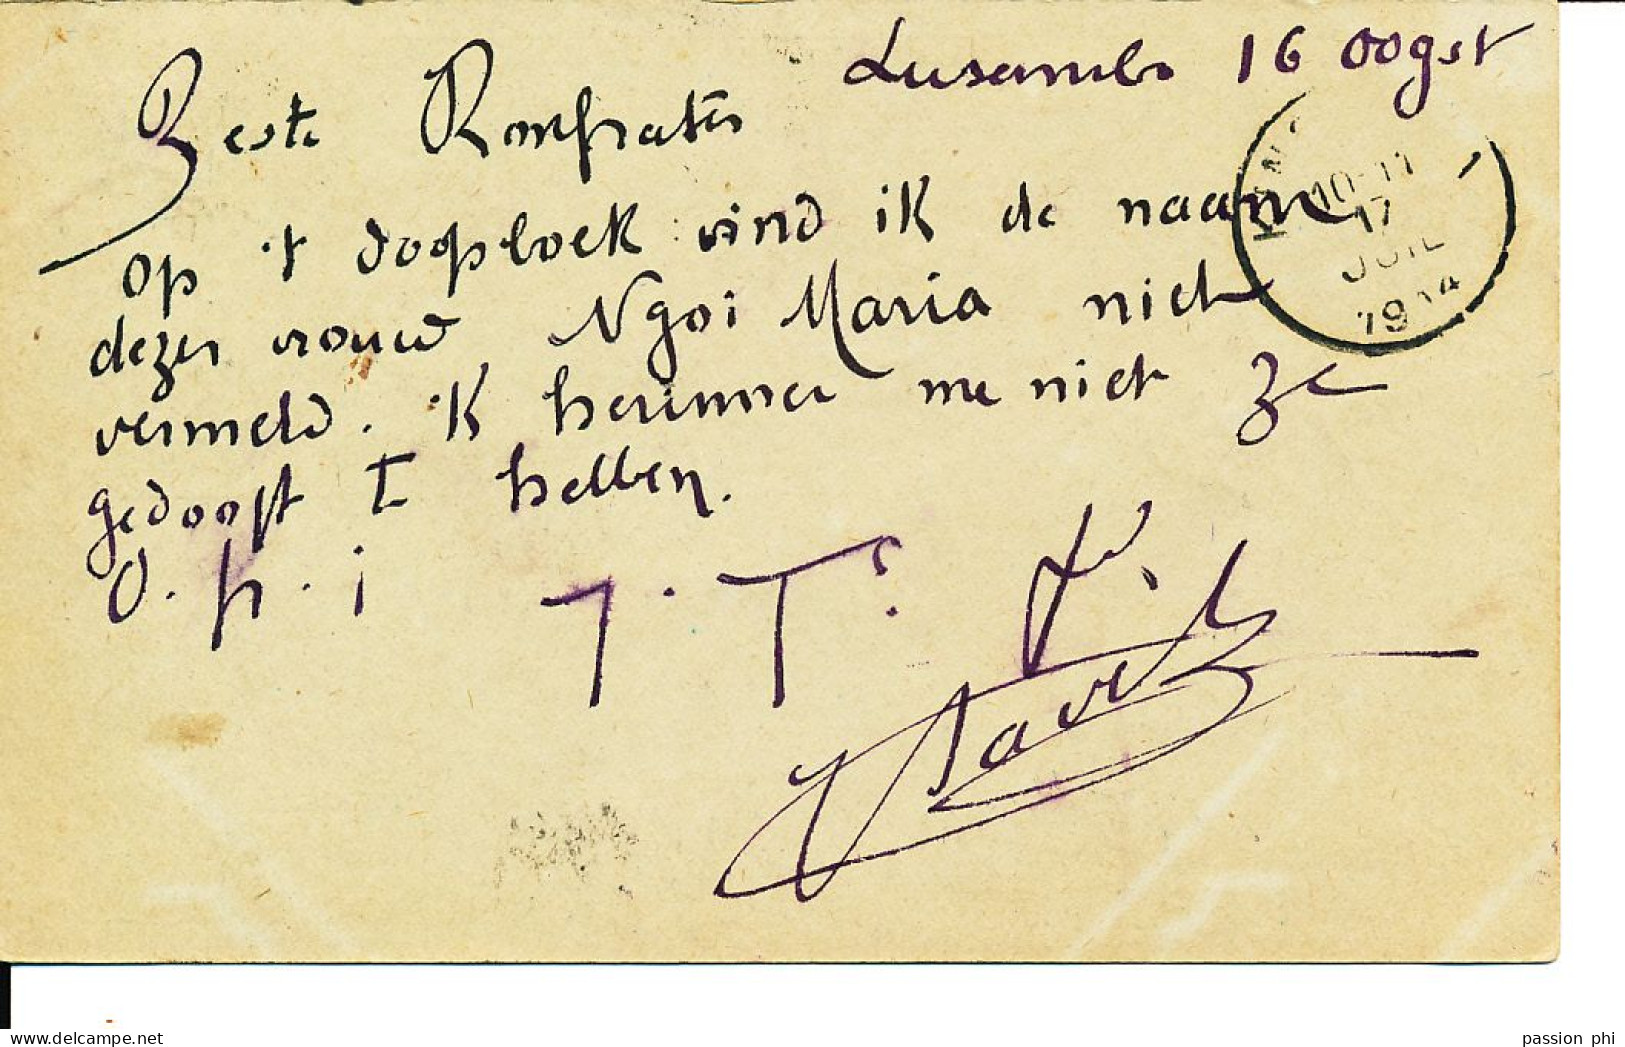 Lusambo 16 Oogst
Beste Confrater
Op 't doopboek vind ik de naam
dezer vrouw Ngoi Maria niet
vermeld. Ik herinner me niet ze
gedoopt te hebben.
O. h. i
10-11
17
JUIL
1914
passion phi